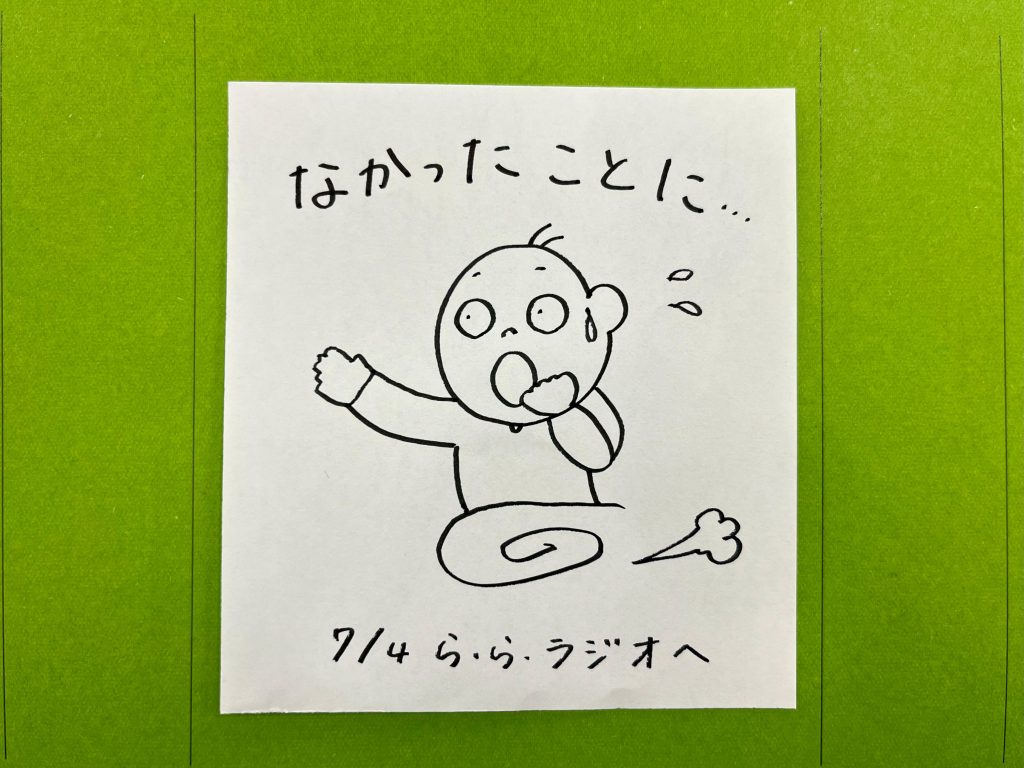 なかったことに…
7/4 ら・ら・ラジオへ